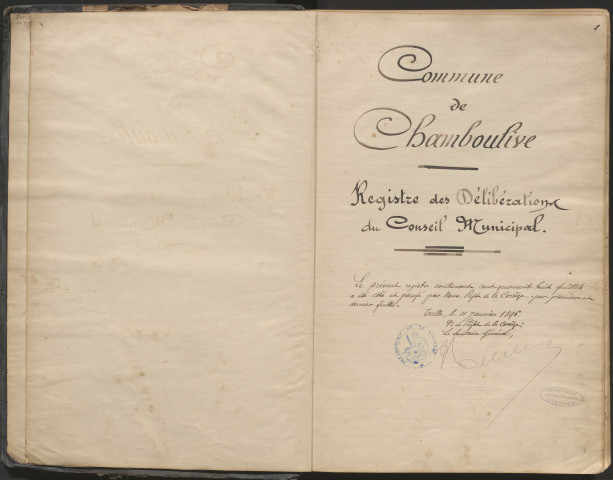 1
Commune
de
Chamboulive
Registre des Délibérations
du Conseil Municipal.
Le présent registre contenant cent quarante huit feuillets
a été coté et parafé par Nous, Préfet de la Corrèze, par premier et
dernier feuillet.
Tulle, le 11 Janvier 1896
Pr le Préfet de la Corrèze:
Le Secrétaire Général,